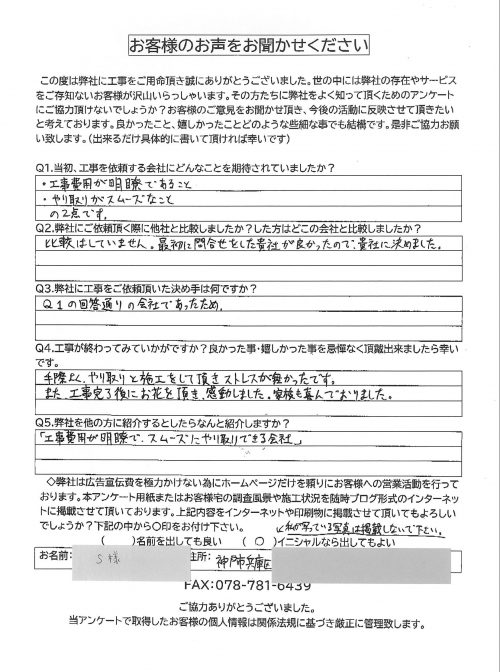 お客様のお声をお聞かせください
この度は弊社に工事をご用命頂き誠にありがとうございました。世の中には弊社の存在やサービス
をご存知ないお客様が沢山いらっしゃいます。その方たちに弊社をよく知って頂くためのアンケート
にご協力頂けないでしょうか？お客様のご意見をお聞かせ頂き、今後の活動に反映させて頂きたい
と考えております。良かったこと、嬉しかったことどのような些細な事でも結構です。是非ご協力お願
い致します。（出来るだけ具体的に書いて頂ければ幸いです）
Q1.当初、工事を依頼する会社にどんなことを期待されていましたか？
・工事費用が明瞭であること
・やり取りがスムーズなこと
の2点です。
Q2.弊社にご依頼頂く際に他社と比較しましたか？した方はどこの会社と比較しましたか？
比較はしていません。最初に問合せをした貴社が良かったので、貴社に決めました。
Q3.弊社に工事をご依頼頂いた決め手は何ですか？
Q1の回答通りの会社であったため。
Q4.工事が終わってみていかがですか？良かった事・嬉しかった事を忌憚なく頂戴出来ましたら幸い
です。
手際よく、やり取りと施工をして頂きストレスが無かったです。
また、工事完了後にお花を頂き、感動しました。家族も喜んでおりました。
Q5.弊社を他の方に紹介するとしたらなんと紹介しますか？
「工事費用が明瞭で、スムーズにやり取りできる会社。」
◇弊社は広告宣伝費を極力かけない為にホームページだけを頼りにお客様への営業活動を行って
おります。本アンケート用紙またはお客様宅の調査風景や施工状況を随時ブログ形式のインターネッ
トに掲載させて頂いております。上記内容をインターネットや印刷物に掲載させて頂いてもよろしい
でしょうか？下記の中から〇印をお付け下さい。 私が写っている写真は掲載しないで下さい。
（　　）名前を出しても良い　（ 〇 ）イニシャルなら出してもよい
お名前： S様 住所： 神戸市兵庫区
FAX：078-781-6439
ご協力ありがとうございました。
当アンケートで取得したお客様の個人情報は関係法規に基づき厳正に管理致します。